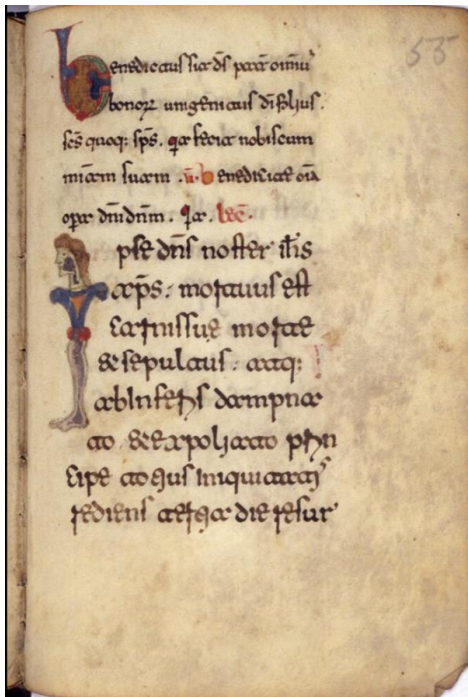 55
Benedictus sit ds pater omniu
bonorꝝ unigenitus di filius.
scs quoq: sps. qa fecit nobiscum
miam suam. v. Benedicite oia
opera dni dnm. Qa. Lec.
Ipse dns noster ihs
xps: mortuus est
carnis sue morte
& sepultus. atq:
ab inferis dampna
to. & expoliato prin
cipe
rediens tertia die resur